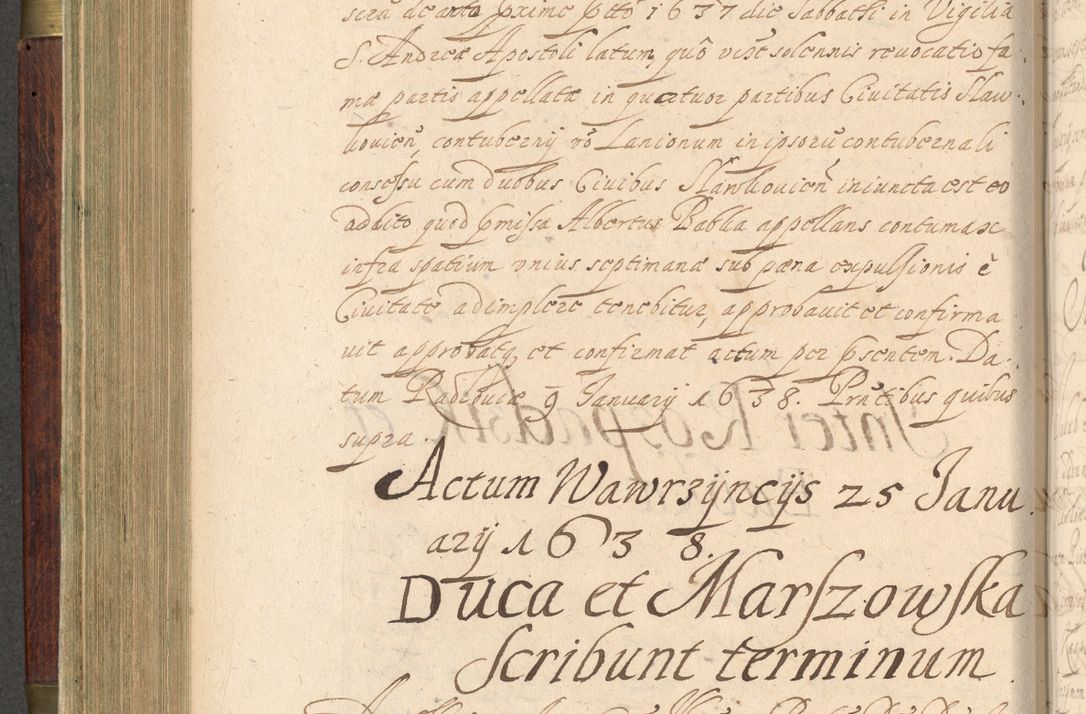 sceu de anno pxime ptto 1637 die Sabbathi in Vigilia
S. Andreæ Apostoli latum, quô viset solennis reuocatio fa
mæ partis appellatæ in quatuor partibus Ciuitatis Slaw
kouien, contubernij vo Lanionum in ipsorũ contubernali
consessu cum duobus Ciuibus Slawkouien iniuncta est eo
addito quod pmissa Albertus Babka appellans contumax
infra spatium vnius septimanæ sub pæna expulsionis è
Ciuitate adimplere tenebitur, approbauit et confirma
uit approbatq, et confirmat actum per psentem. Da
tum Radlouiæ 9 Januarij 1638. Pntibus quibus
supra.
Actum Wawrzÿncÿs 25 Janu
arij 1638.
Duca et Marszowska
scribunt terminum